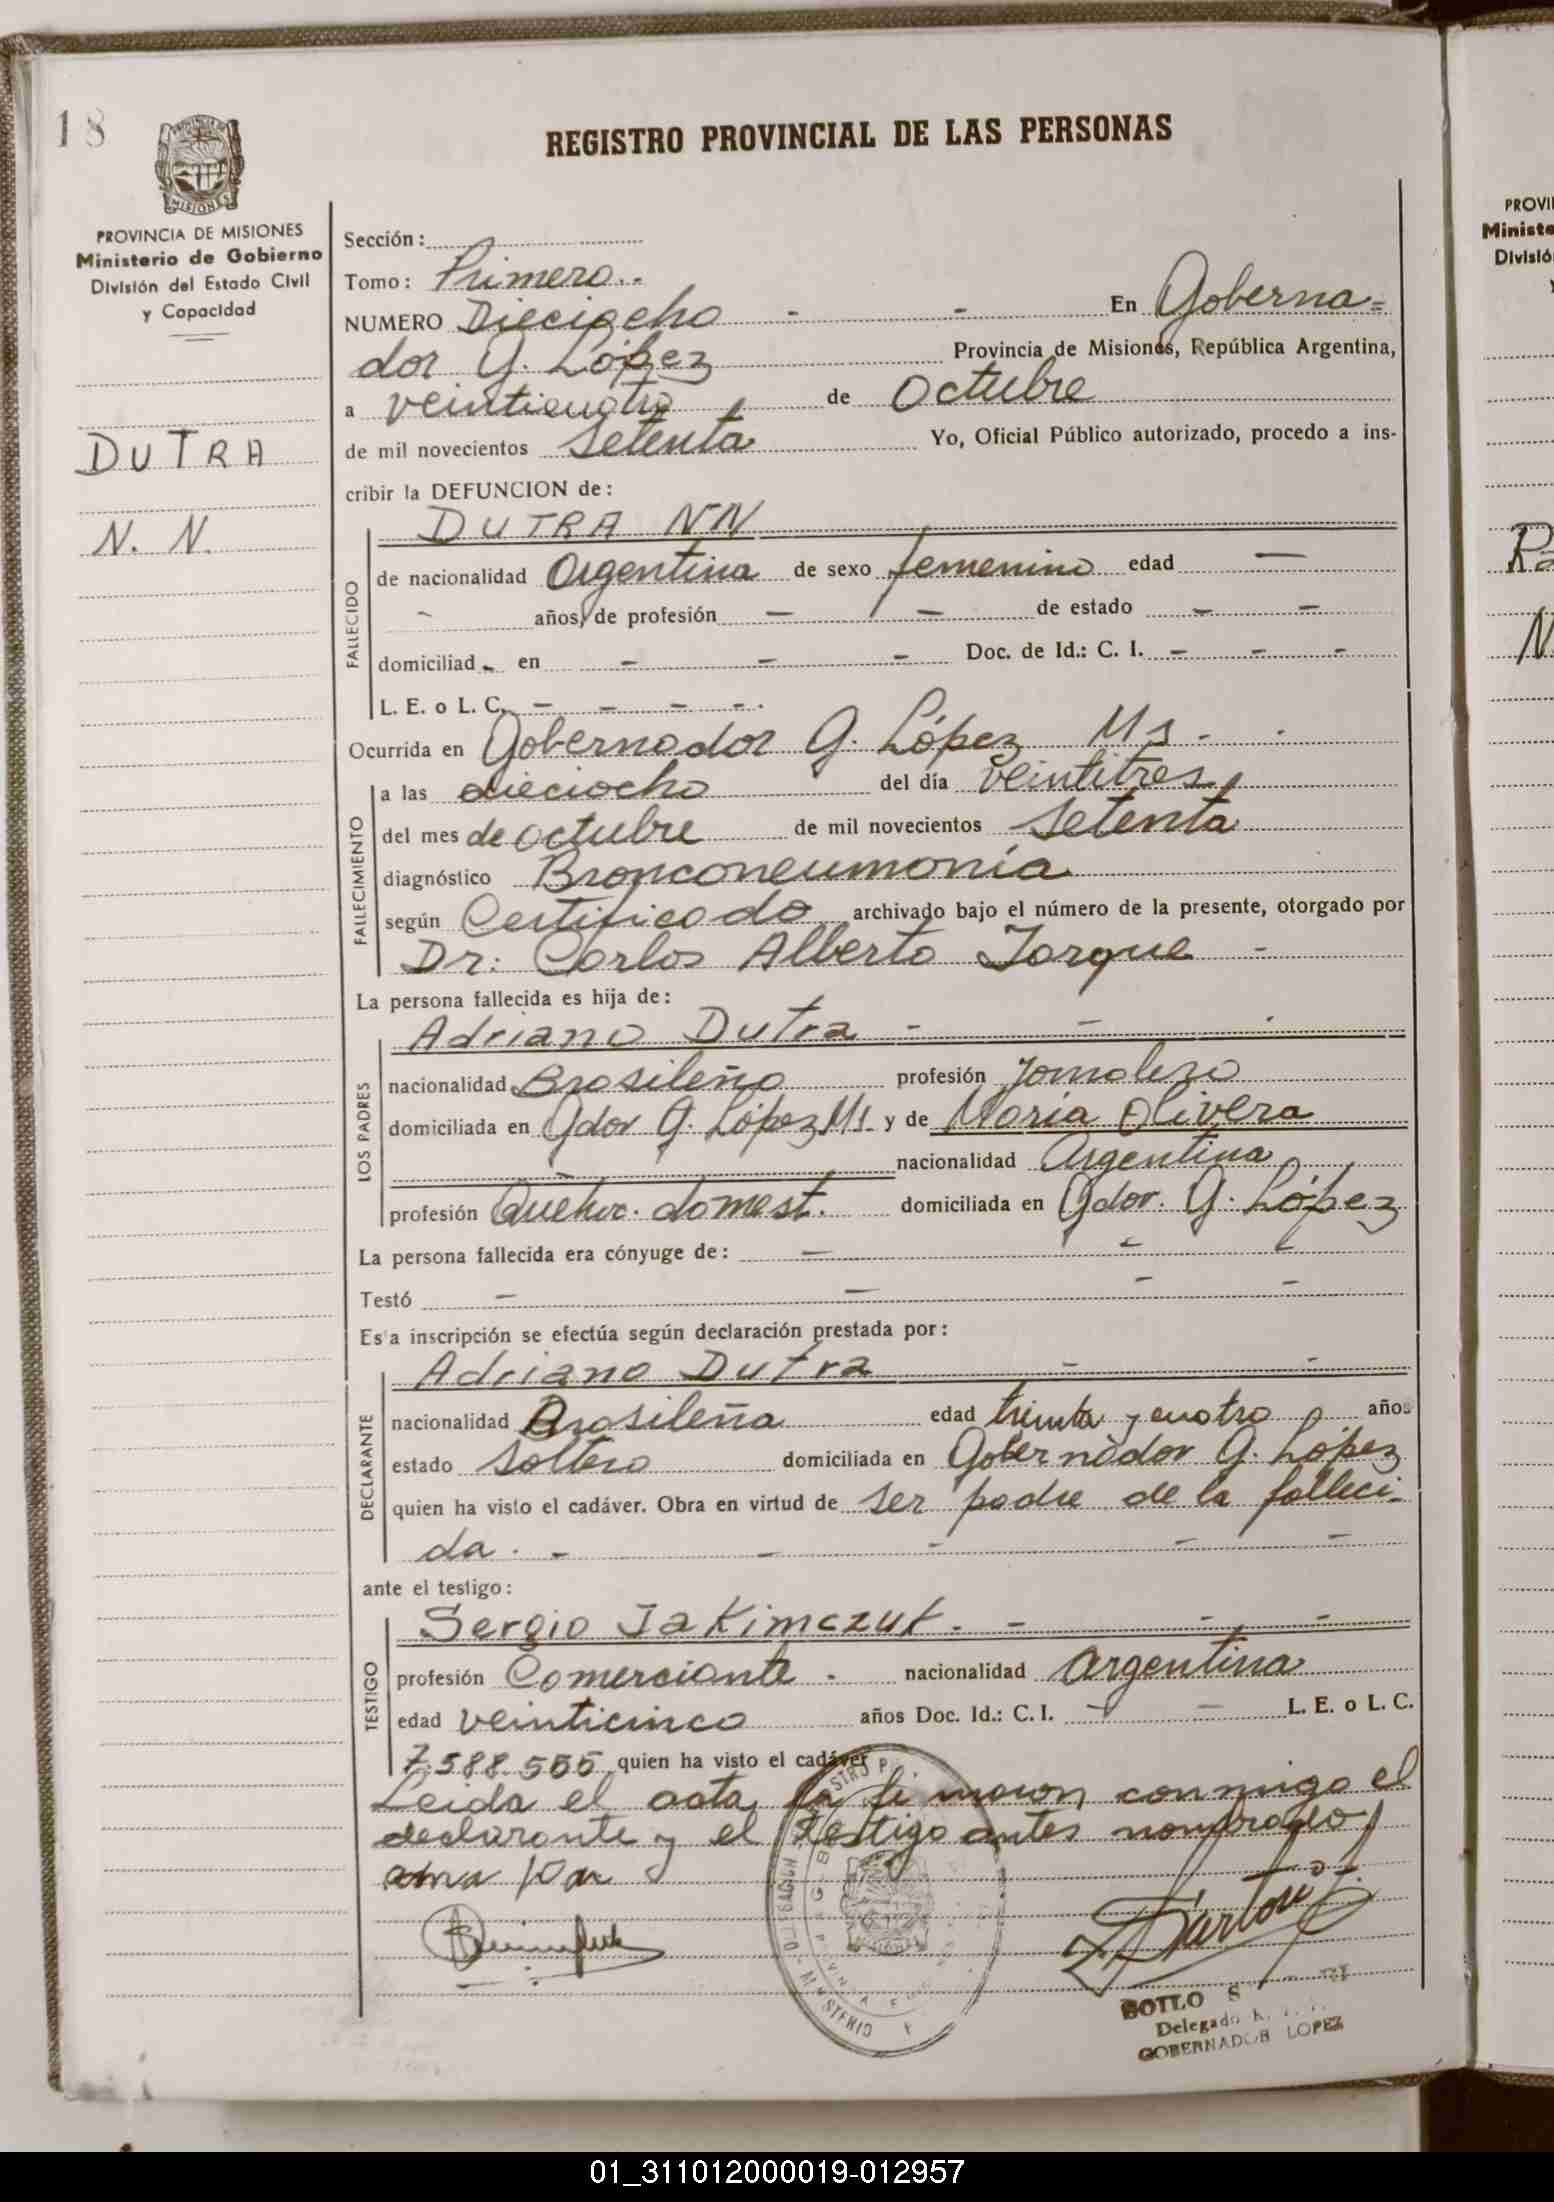 18
PROVINCIA DE MISIONES
Ministerio de Gobierno
División del Estado Civil
y Capacidad
DUTRA
N. N.
REGISTRO PROVINCIAL DE LAS PERSONAS
Sección:
Tomo: Primero..
NUMERO Dieciocho - - En Goberna=
dor G. López Provincia de Misiones, República Argentina,
a veinticuatro de Octubre
de mil novecientos Setenta Yo, Oficial Público autorizado, procedo a ins-
cribir la DEFUNCION de:
DUTRA NN
FALLECIDO
de nacionalidad Argentina de sexo femenino edad —
- años, de profesión — — de estado — —
domiciliad - en — — — Doc. de Id.: C. I. — — —
L. E. o L. C. — — — —.
Ocurrida en Gobernador G. López Ms -
FALLECIMIENTO
a las dieciocho del día veintitres
del mes de octubre de mil novecientos Setenta
diagnóstico Bronconeumonía
según Certificado archivado bajo el número de la presente, otorgado por
Dr: Carlos Alberto Jorque -
La persona fallecida es hija de:
Adriano Dutra - -
LOS PADRES
nacionalidad Brasileño profesión Jornalero
domiciliada en Gdor G. López Ms y de María Olivera
- nacionalidad Argentina
profesión Quehac. domest. domiciliada en Gdor. G. López
La persona fallecida era cónyuge de: — - -
Testó — — - -
Es'a inscripción se efectúa según declaración prestada por:
Adriano Dutra - -
DECLARANTE
nacionalidad Brasileña edad treinta y cuatro años
estado Soltero domiciliada en Gobernador G. López
quien ha visto el cadáver. Obra en virtud de ser padre de la falleci-
da. - - - - -
ante el testigo:
Sergio Jakimczuk. - - -
TESTIGO
profesión Comerciante - nacionalidad Argentina
edad veinticinco años Doc. Id.: C. I. - - L. E. o L. C.
7.588.555 quien ha visto el cadáver
Leida el acta la firmaron conmigo el
declarante y el testigo antes nombrado
Delegado
GOBERNADOR LOPEZ
PROVI
Ministe
Divisió
y
Ra
N
01_311012000019-012957